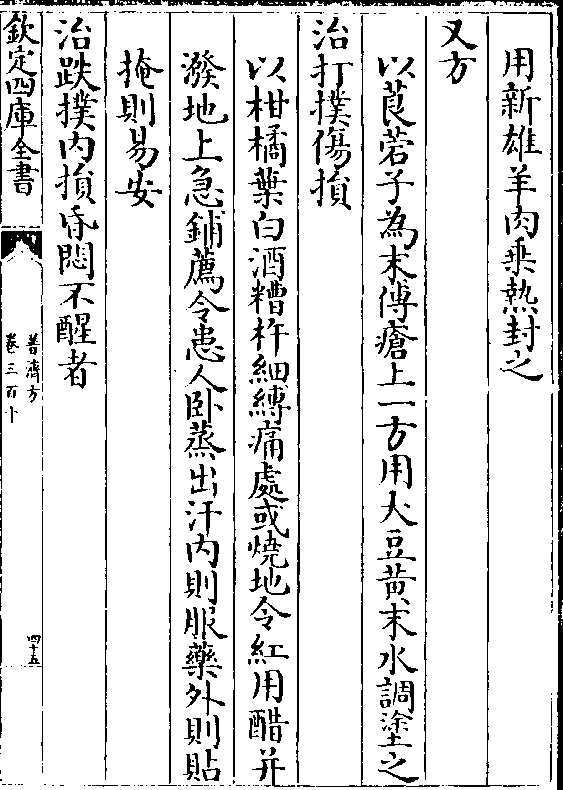 用新雄羊肉乗熱封之
又方
以莨菪子為末傅瘡上一方用大豆黄末水調塗之
治打撲傷損
以柑橘葉白酒糟杵細縛痛處或燒地令紅用醋并
潑地上急鋪薦令患人卧蒸出汗内則服藥外則貼
掩則易安
治跌撲内損昏悶不醒者
欽定四庫全書
普濟方
卷三百十
四十五